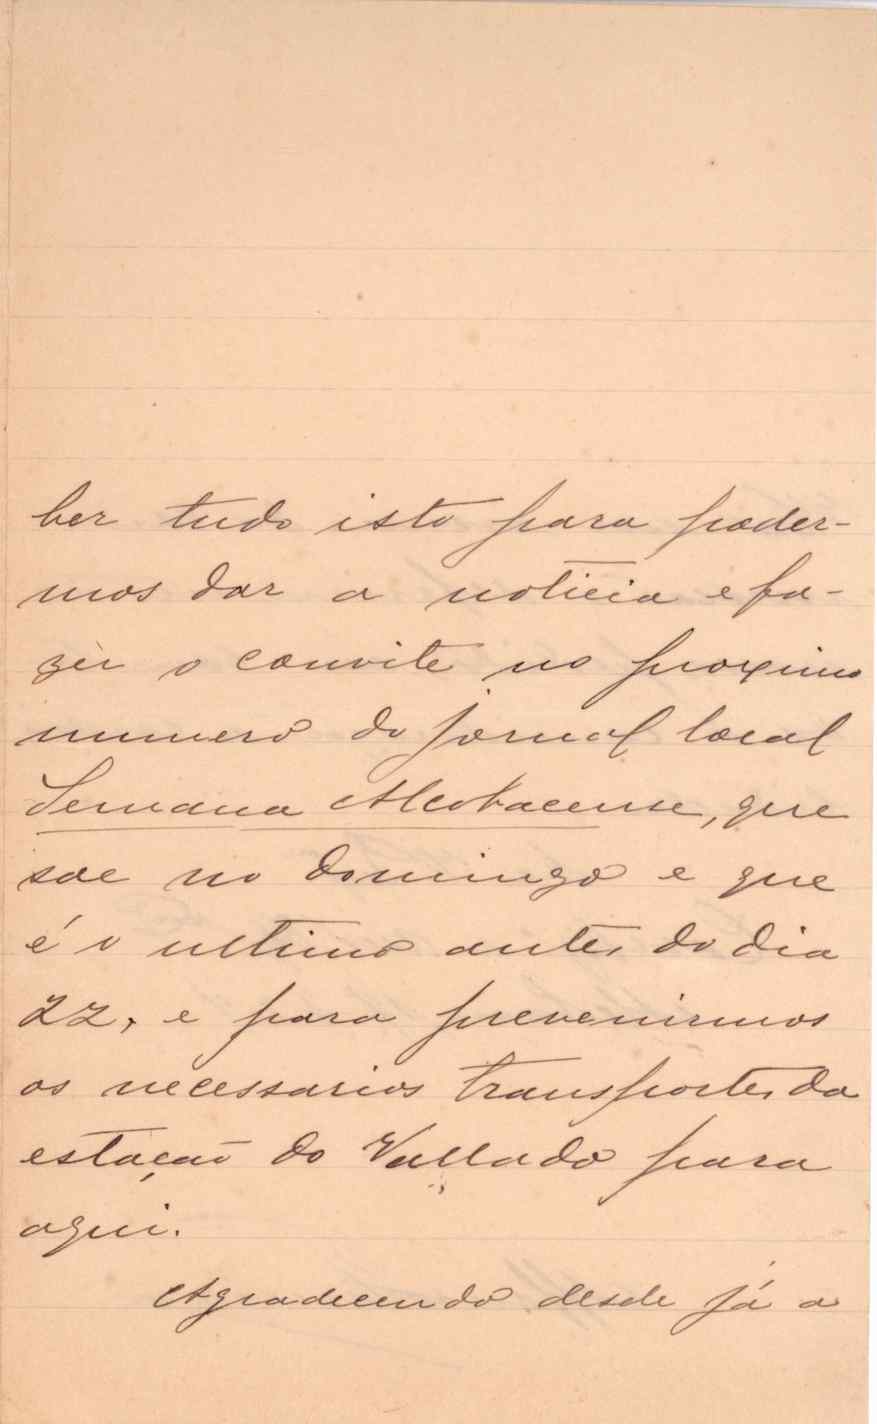 ber tudo isto para poder-
mos dar a noticia e fa-
zer o convite no proximo
numero do jornal local
Semana Alcobacense, que
sae no domingo e que
é o ultimo antes do dia
22, e para prevenirmos
os necessarios transportes da
estação do Vallado para
aqui.
Agradecendo desde já a